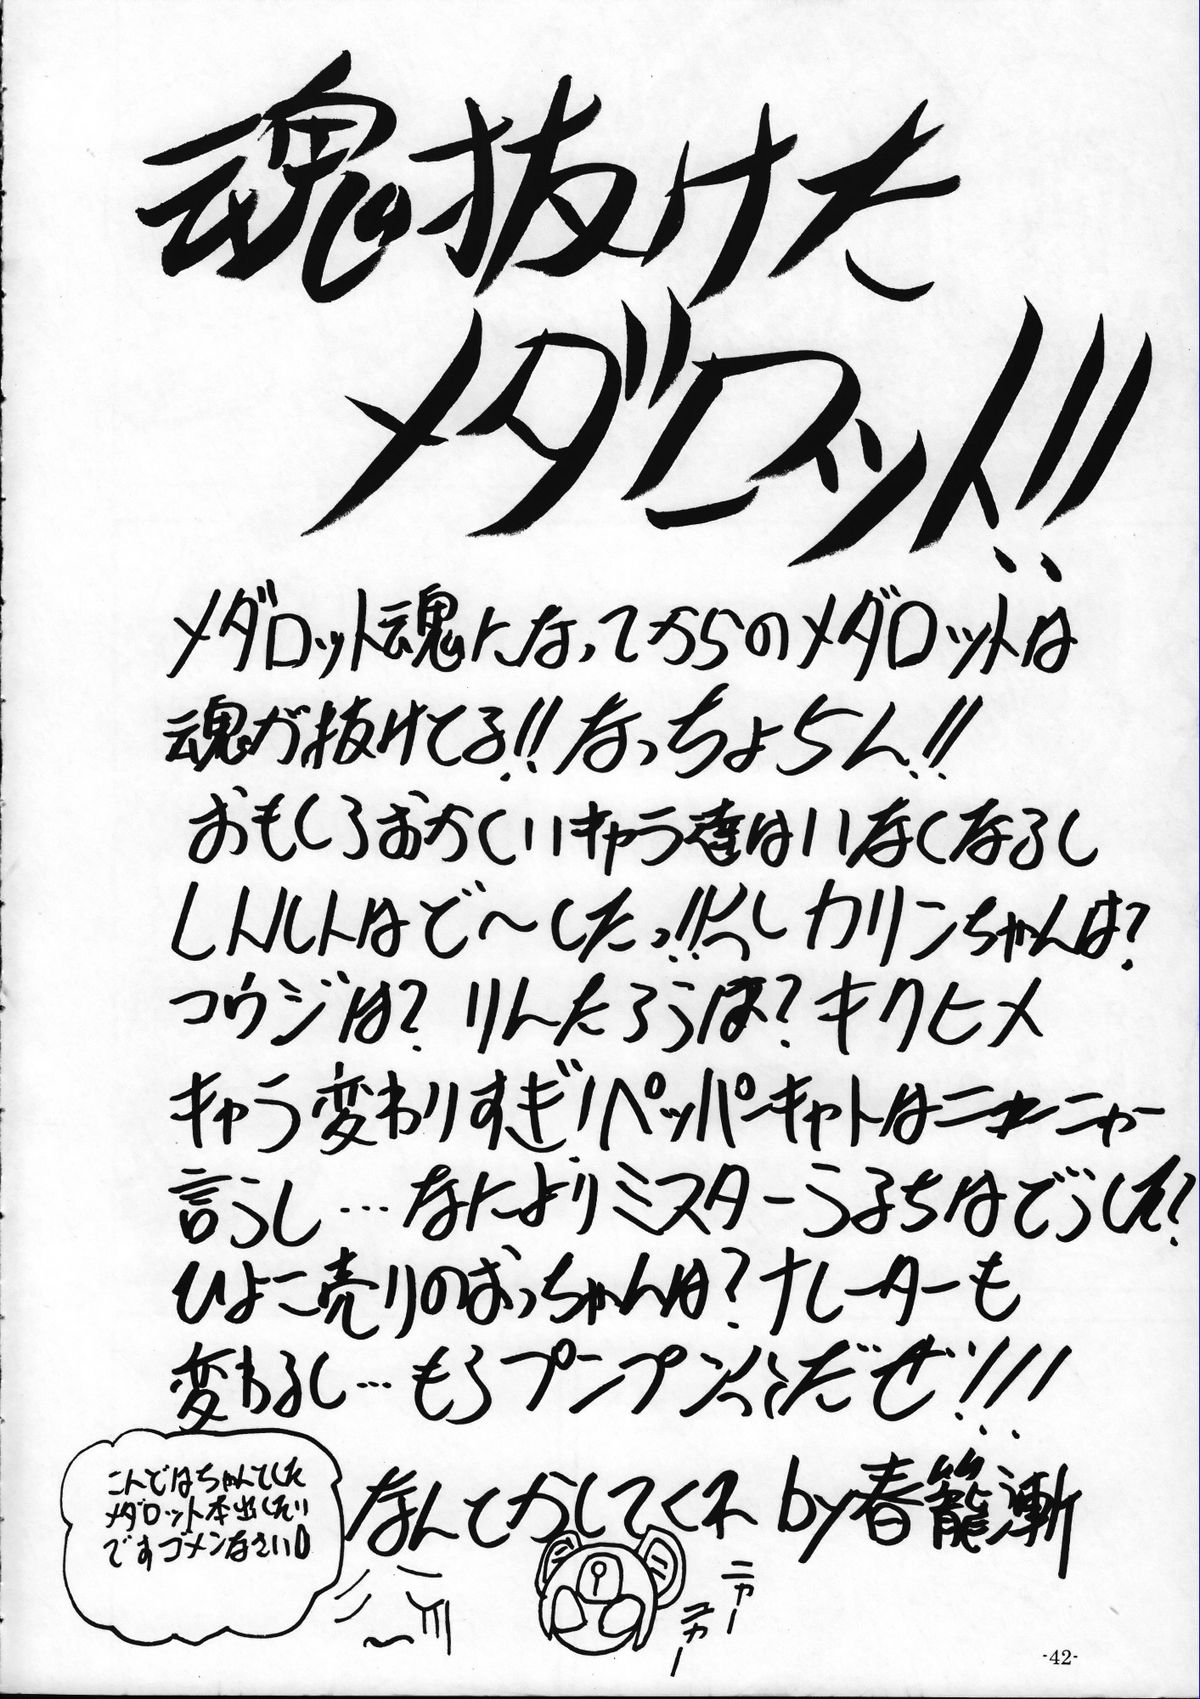 魂抜けた
メダロット!!
メダロット魂になってからのメダロットは
魂が抜けてる!!なっちょらん!!
おもしろおかしいキャラ達はいなくなるし
レトルトはど〜したっ!!しカリンちゃんは?
コウジは?りんたろうは?キクヒメ
キャラ変わりすぎ!ペッパーキャットはニャーニャー
言うし…なによりミスターうるちはどうした?
ひよこ売りのおっちゃんは?ナレーターも
変わるし…もうプンプンだぜ!!!
なんとかしてくれ by春籠漸
こんどはちゃんとした
メダロット本出したい
ですゴメンなさい
ニャー
ニャー
-42-